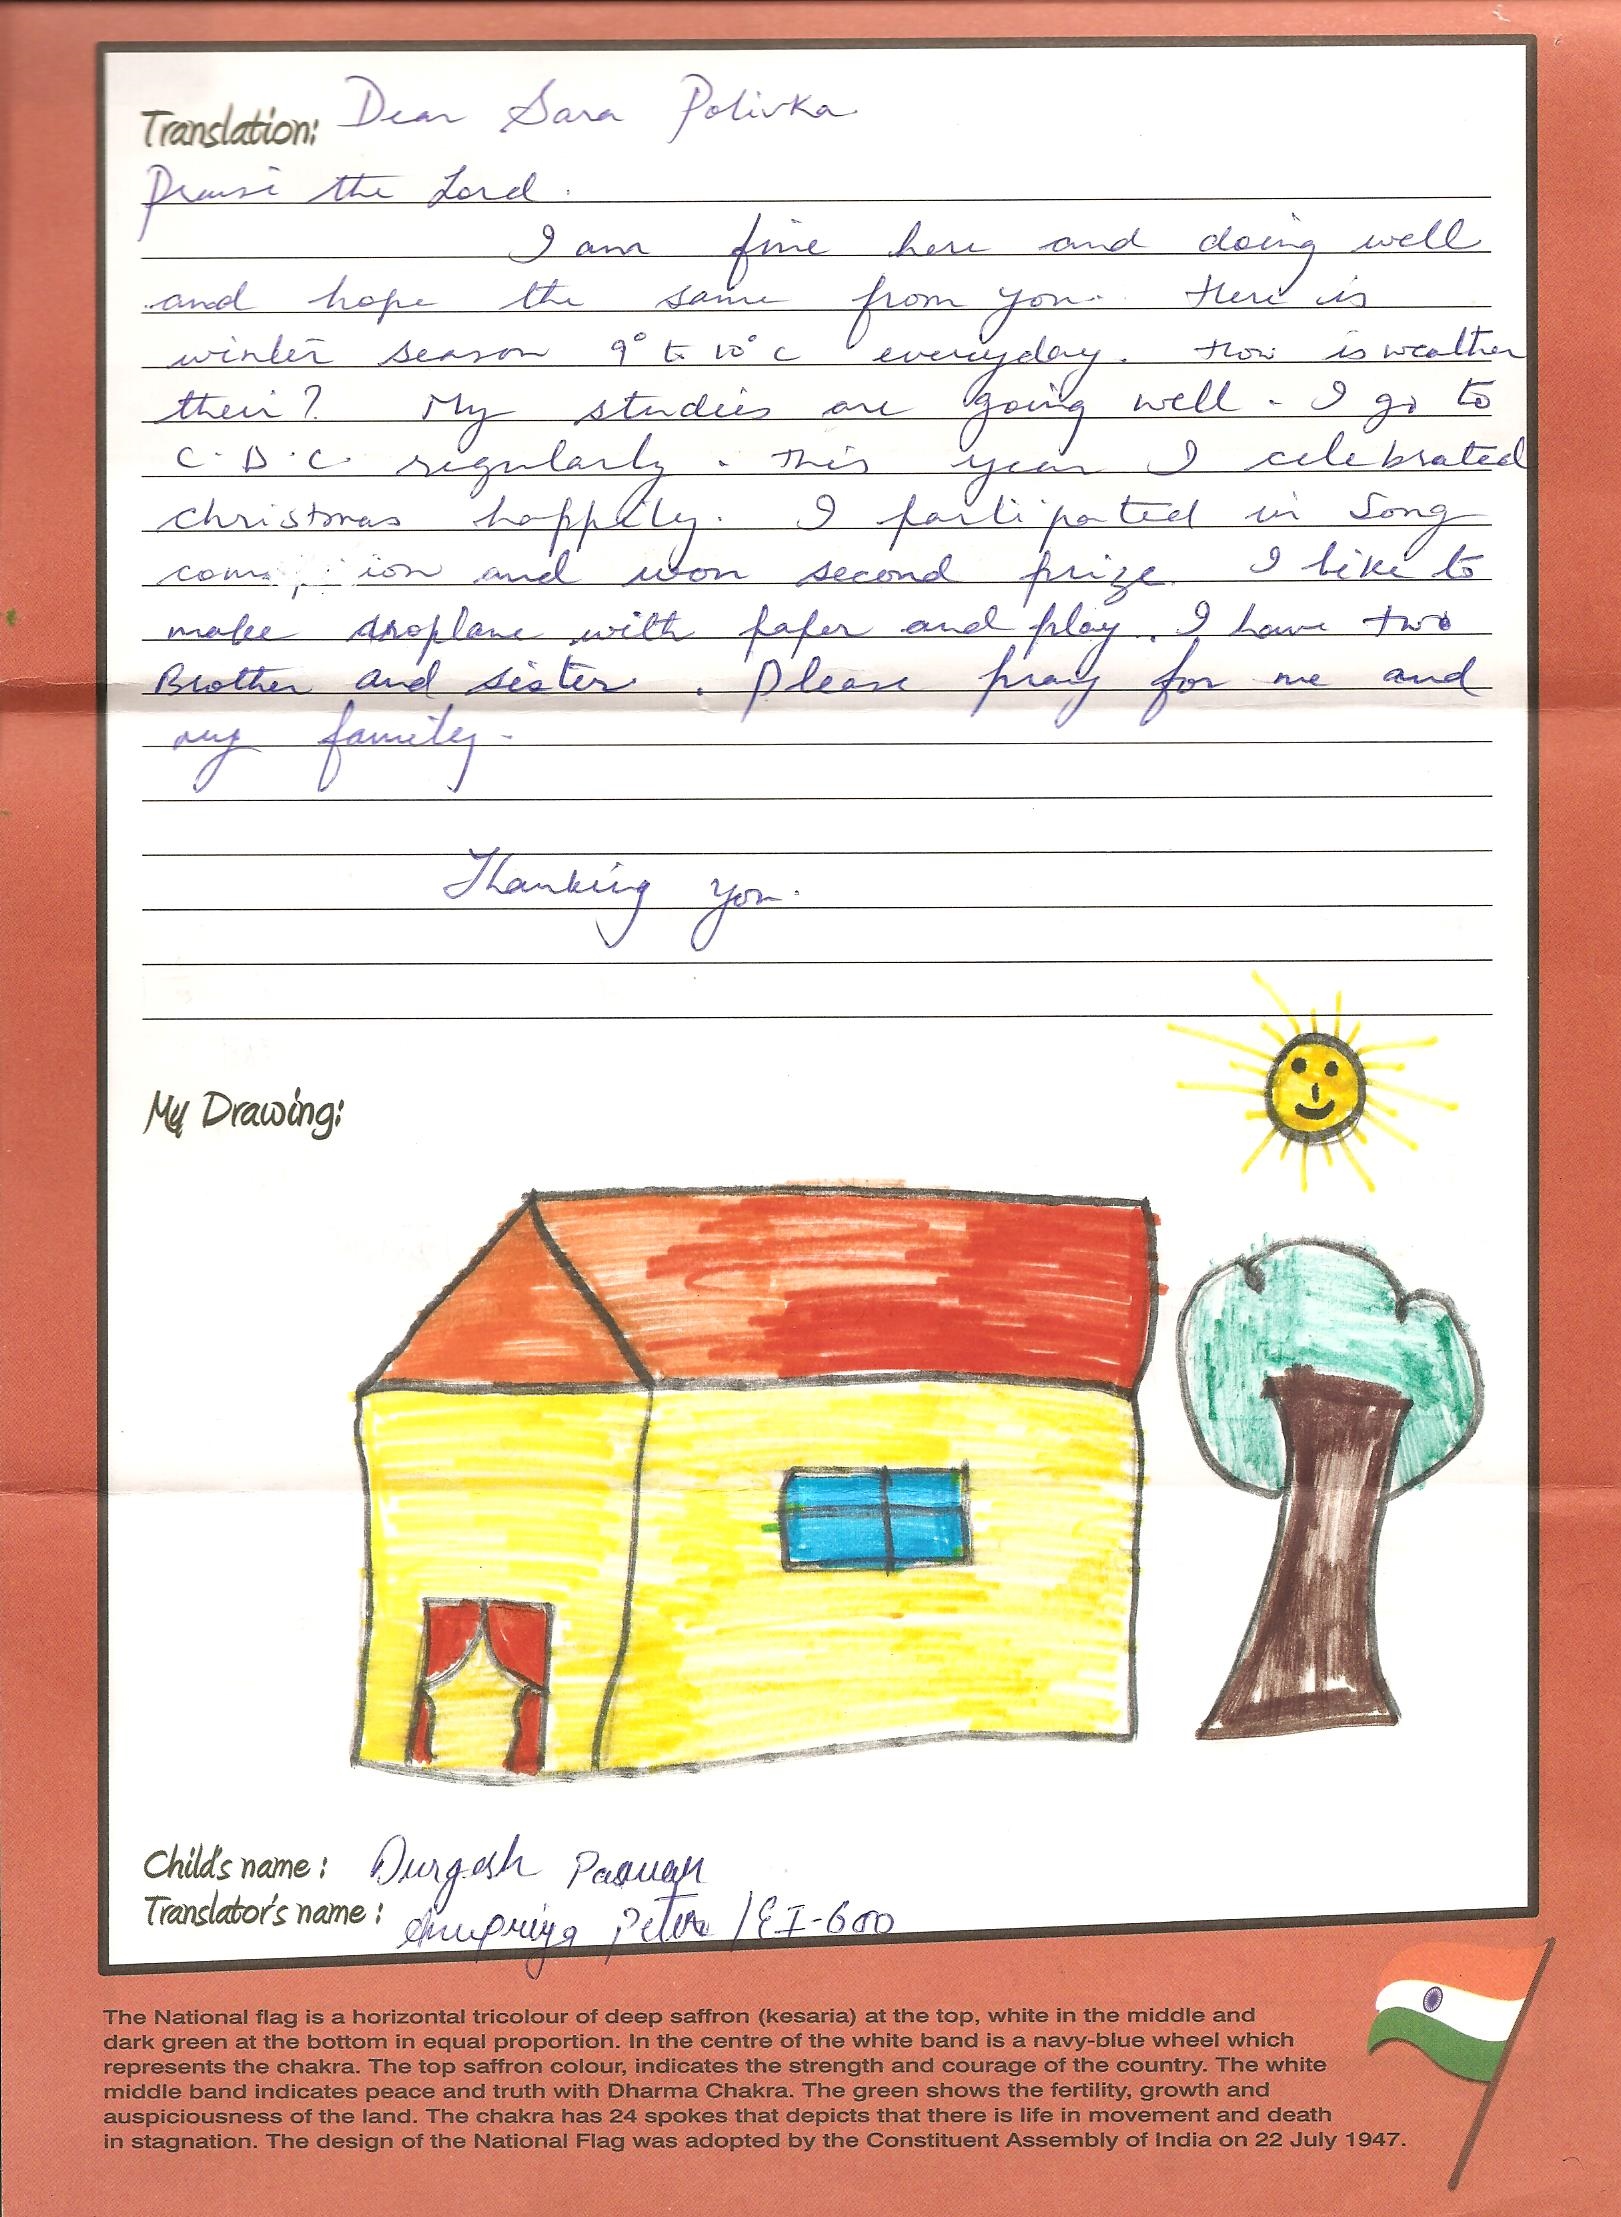 Translation: Dear Sara Polivka
Praise the Lord.
I am fine here and doing well
and hope the same from you. Here is
winter season 9° to 10° c everyday. How is weather
their? My studies are going well. I go to
C.D.C. regularly. This year I celebrated
christmas happily. I participated in Song
and won second prize. I like to
make aroplane with paper and play. I have two
Brother and sister. Please pray for me and
my family.
Thanking you.
My Drawing:
Child's name: Durgesh Paswan
Translator's name: Anupriya Peter / EI-600
The National flag is a horizontal tricolour of deep saffron (kesaria) at the top, white in the middle and
dark green at the bottom in equal proportion. In the centre of the white band is a navy-blue wheel which
represents the chakra. The top saffron colour, indicates the strength and courage of the country. The white
middle band indicates peace and truth with Dharma Chakra. The green shows the fertility, growth and
auspiciousness of the land. The chakra has 24 spokes that depicts that there is life in movement and death
in stagnation. The design of the National Flag was adopted by the Constituent Assembly of India on 22 July 1947.